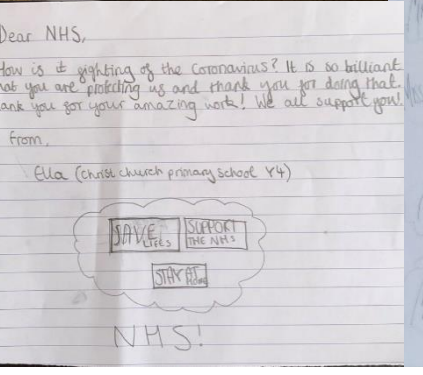 Dear NHS,
How is it fighting of the Coronavirus? It is so brilliant
hat you are protecting us and thank you for doing that.
ank you for your amazing work! We all support you!
from,
Ella (christ church primary school Y4)
SAVE LIFES
SUPPORT
THE NHS
STAY AT HOME
NHS!